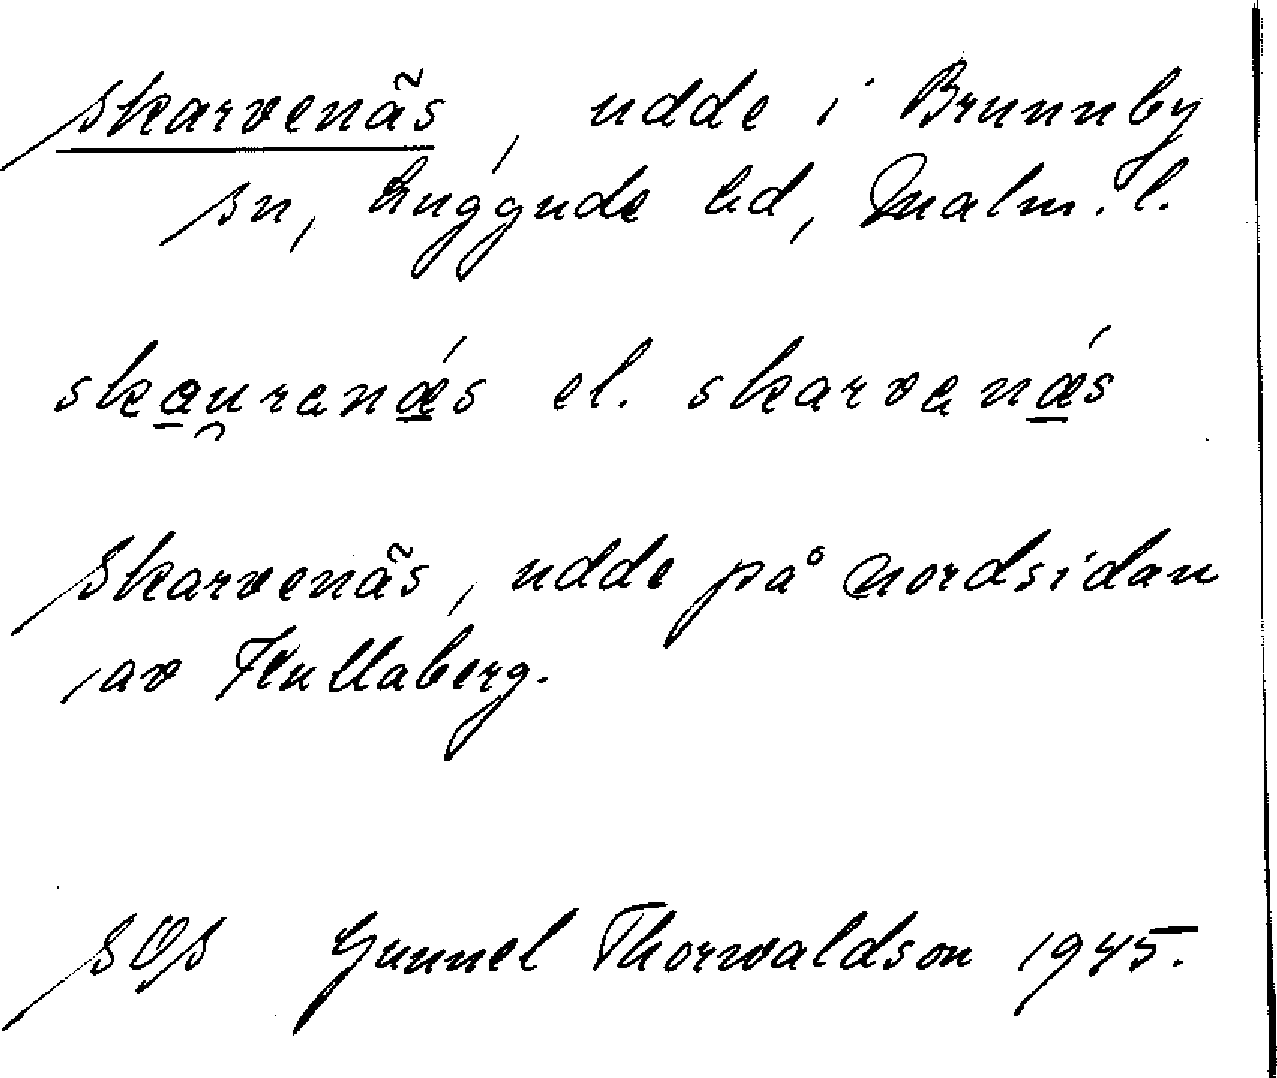 Skarvenäs, udde i Brunnby
sn, Luggude hd, Malm. l.
skau̯rənǽ̱s el. skarvənǽ̱s
Skarvenäs, udde på nordsidan
av Kullaberg.
SOS Gunnel Thorwaldson 1945.